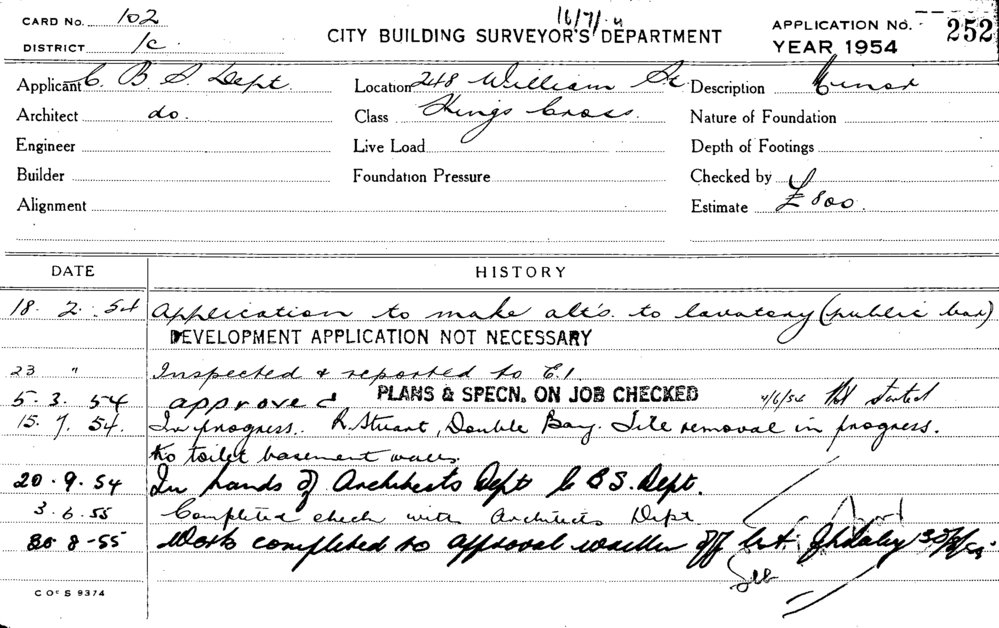 CARD No. 102
16/7/
DISTRICT 1c.
CITY BUILDING SURVEYOR'S DEPARTMENT
APPLICATION No. 252
YEAR 1954
Applicant C. B. S. Dept. Location 248 William St Description Minor
Architect do. Class Kings Cross. Nature of Foundation
Engineer Live Load Depth of Footings
Builder Foundation Pressure Checked by
Alignment Estimate £800.
DATE HISTORY
18. 2. 54 Application to make alt's. to lavatory (public bar)
DEVELOPMENT APPLICATION NOT NECESSARY
23 " Inspected & reported to E.1
5. 3. 54 approved PLANS & SPECN. ON JOB CHECKED 4/6/54 Not started
15. 7. 54. In progress. R. Stuart, Double Bay. Tile removal in progress.
to toilet basement walls.
20. 9. 54 In hands of Architects Dept C B S. Dept.
3. 6. 55 Completed check with Architects Dept
30 8 - 55 Work completed to approval off
C OF S 9374